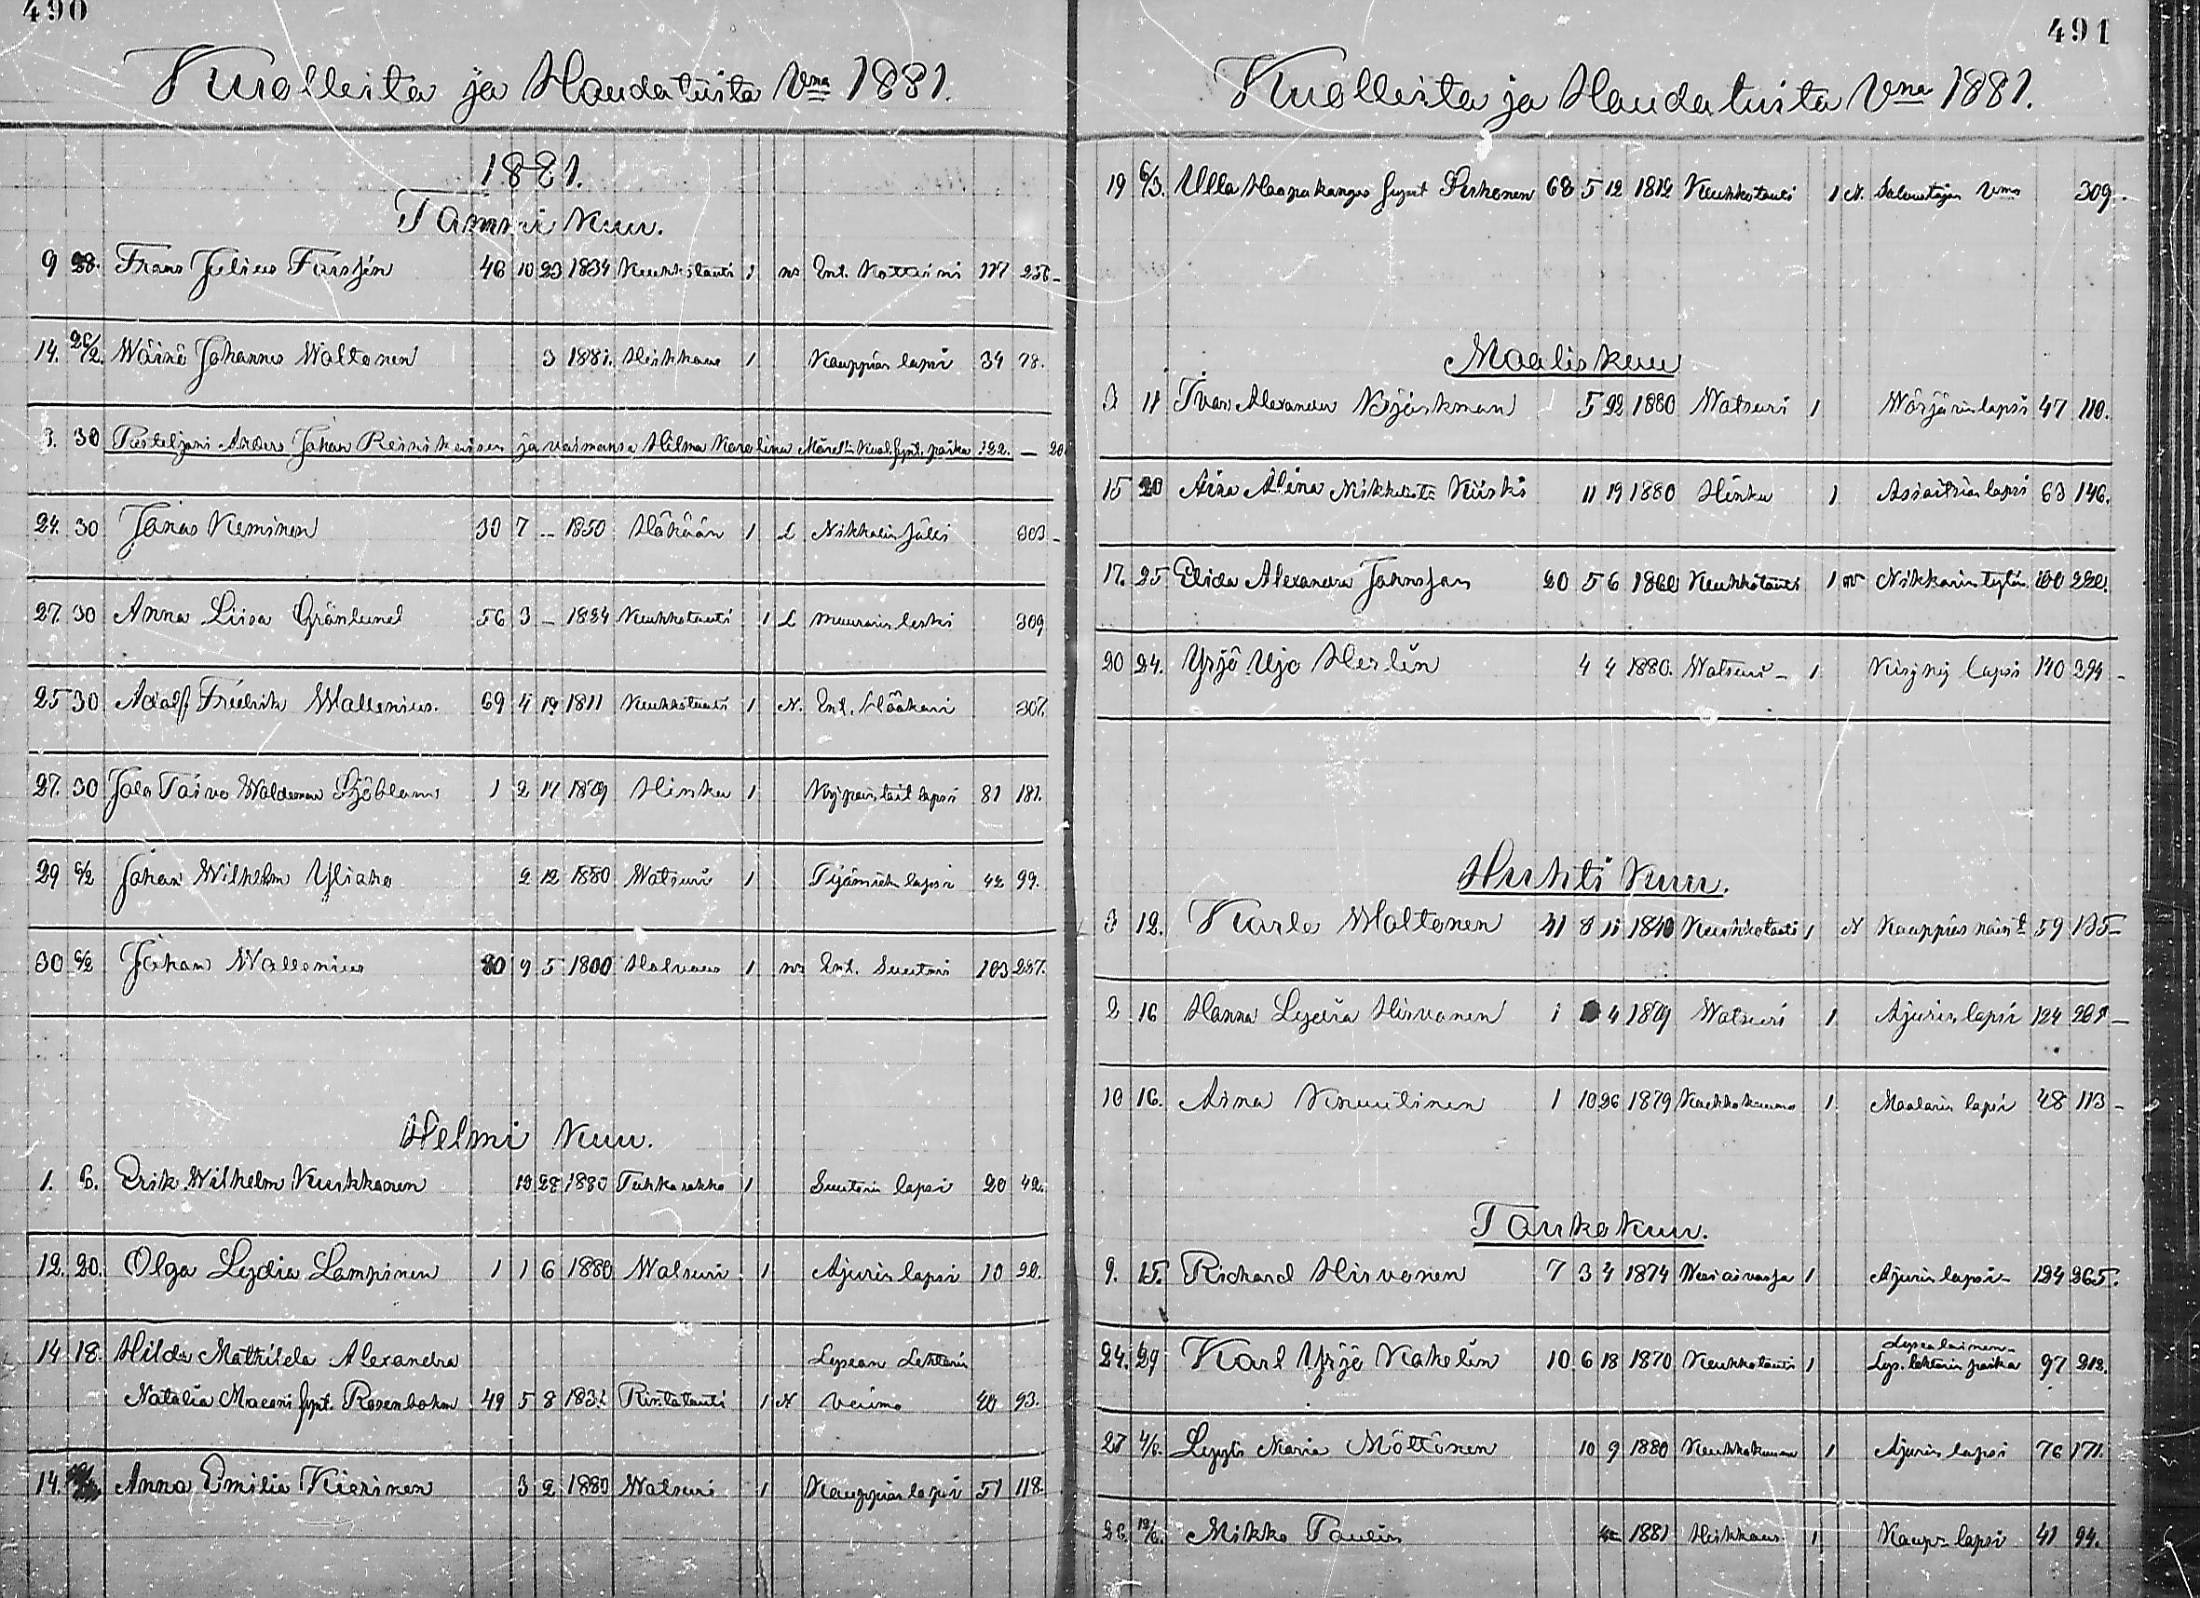 490
Kuolleita ja Haudatuita Vna 1881.
1881.
Tammi Kuu.
9 28. Frans Julius Forssén 46 10 23 1834 Keuhkotauti 1 Ent. 117 256
14. 26/2. Wäinö Johannes Waltonen 3 1881. Heikkous 1 Kauppias lapsi 34 78.
3. 30 Anders Johan Reinikainen ja vaimonsa Hilma Karolina poika 122. — 20
24. 30 Jonas Keminen 30 7 — 1850 Häkään 1 L Nikkalin 303
27. 30 Anna Liisa Grönlund 56 3 — 1824 Keuhkotauti 1 L Muurarin leski 309
25 30 Adolf Fredrik Wallenius. 69 4 19 1811 Keuhkotauti 1 N. Ent. 307.
27. 30 Toivo Waldemar Sjöblom 1 2 17 1879 Hinku 1 lapsi 81 181.
29 6/2 Johan Wilhelm Yliaho 2 12 1880 Watsuri 1 Työmieh lapsi 42 99.
30 6/2 Johan Wallenius 80 9 5 1800 Halvaus 1 Ent. Suutari 103 237.
Helmi Kuu.
1. 6. Erik Wilhelm Kuikkanen 10 28 1880 Tuhkarokko 1 Suutarin lapsi 20 42.
12. 20. Olga Lydia Lampinen 1 1 6 1880 Watsuri 1 Ajurin lapsi 10 20.
14 18. Hilda Mathilda Alexandra Lysean Lehtorin
Natalia Maconi synt. Rosenbohm 49 5 8 1831 Rintatauti 1 N vaimo 40 93.
14. Anna Emilia Kierinen 3 2 1880 Watsuri 1 Kauppias lapsi 51 118.
491
Kuolleita ja Haudatuita Vna 1881.
19 6/3. Ulla Haapakangas synt Peskonen 68 5 12 1812 Keuhkotauti 1 N. vmo 309
Maaliskuu
3 11 Ivar Alexander Björkman 5 22 1880 Watsuri 1 Wärjärin lapsi 47 110.
15 20 Aina Alina Kiiski 11 19 1880 Hinku 1 Asioitsian lapsi 63 146.
17. 25 Elida Alexandra Johnsson 20 5 6 1860 Keuhkotauti 1 Nikkarin tytär 100 220.
20 24. Yrjö Ujo Herlin 4 4 1880. Watsuri 1 lapsi 140 324
Huhti Kuu.
3 12. Karle Waltonen 41 8 11 1840 Keuhkotauti 1 N Kauppias 59 135
2 16 Hanna Lydia Hirvonen 1 4 1879 Watsuri 1 Ajurin lapsi 124 267
10 16. Aina Knuutinen 1 10 26 1879 Keuhkokuume 1 Maalarin lapsi 48 113
Toukokuu.
9. 15. Richard Hirvonen 7 3 4 1874 Wesi aivossa 1 Ajurin lapsi 124 265.
24. 29 Karl Yrjö Kakelin 10 6 18 1870 Keuhkotauti 1 Lysealainen Lys. lehtorin poika 97 212.
27 4/6. Lyyti Maria Möttönen 10 9 1880 Keuhkokuume 1 Ajurin lapsi 76 171.
26. 12/6. Mikko Paulin 1881 Heikkous 1 Kaup. lapsi 41 94.